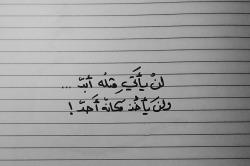 لن يأتي مثله أبدً ...
ولن يأخذ مكانه أحدٌ !